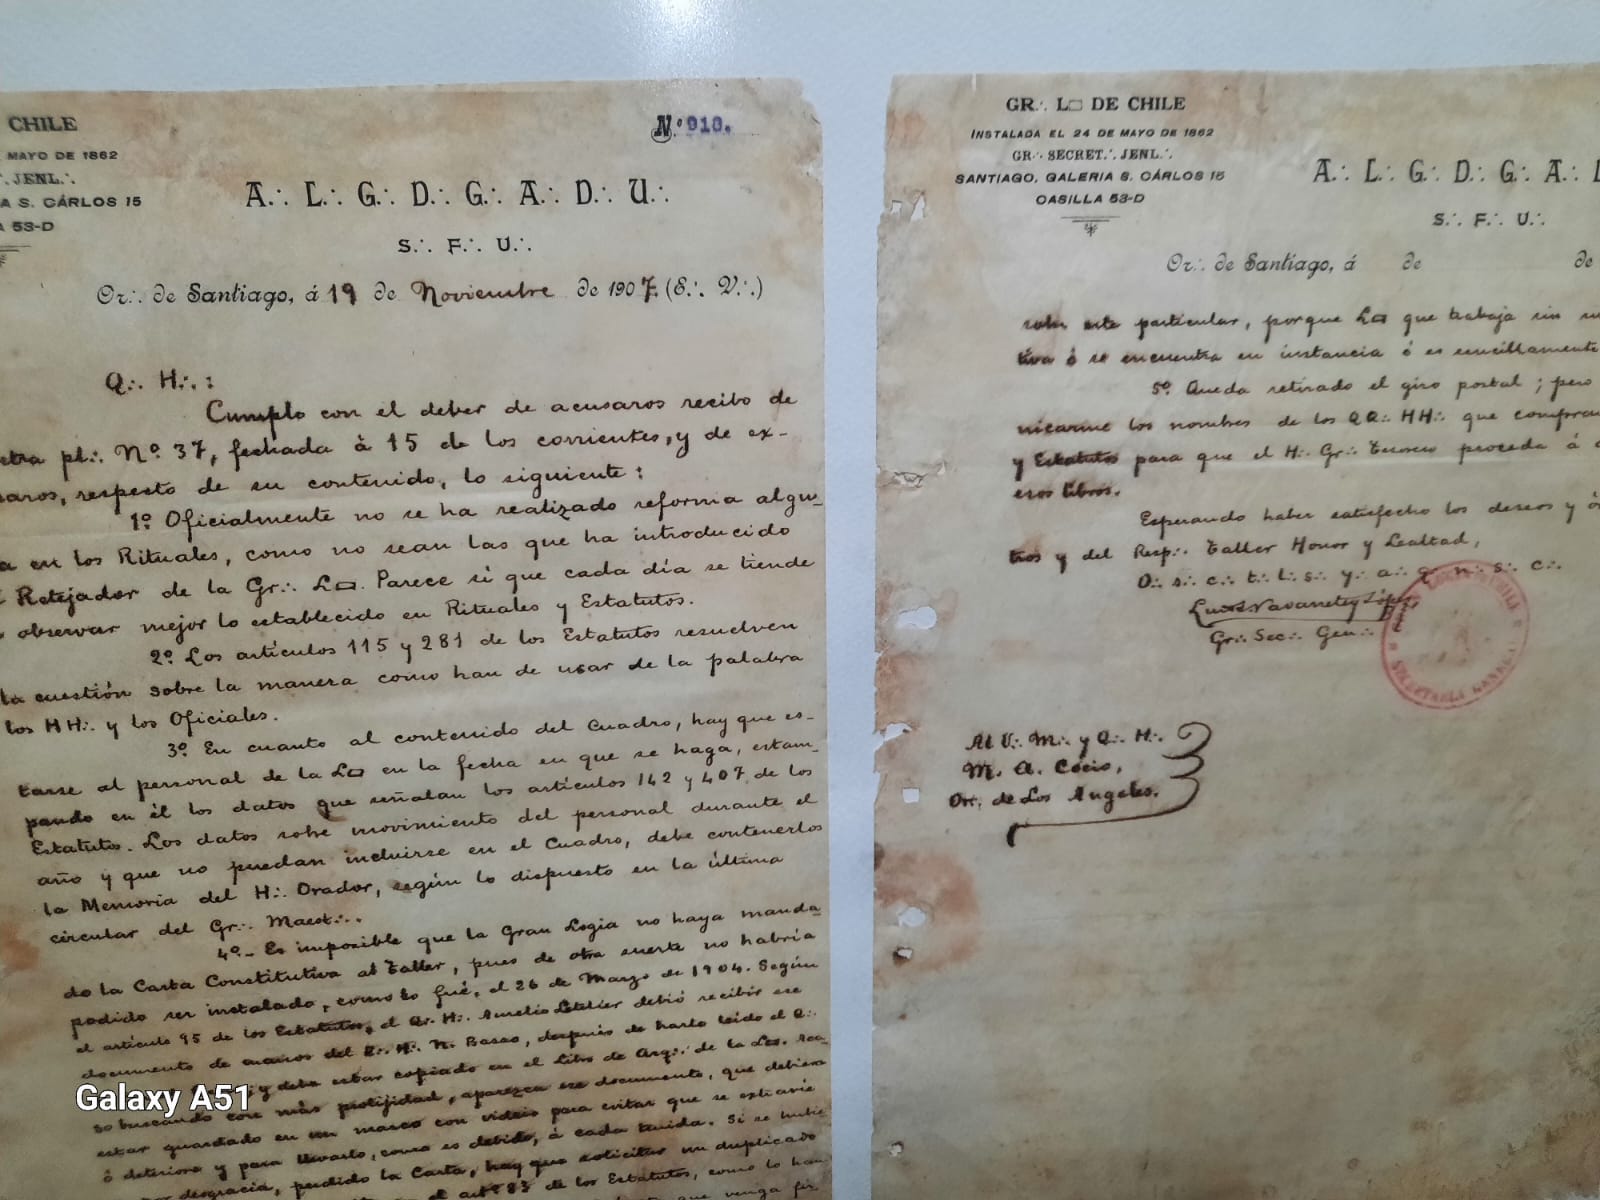 CHILE
MAYO DE 1862
.·. JENL.·.
A S. CÁRLOS 15
53-D
Nº 910.
A.·. L.·. G.·. D.·. G.·. A.·. D.·. U.·.
S.·. F.·. U.·.
Or.·. de Santiago, á 19 de Noviembre de 1907. (E.·. V.·.)
Q.·. H.·. :
Cumplo con el deber de acusaros recibo de
etra pl.·. Nº 37, fechada á 15 de los corrientes, y de ex-
saros, respecto de su contenido, lo siguiente :
1º Oficialmente no se ha realizado reforma algu-
a en los Rituales, como no sean las que ha introducido
l Retejador de la Gr.·. L▭. Parece si que cada día se tiende
observar mejor lo establecido en Rituales y Estatutos.
2º Los artículos 115 y 281 de los Estatutos resuelven
la cuestión sobre la manera como han de usar de la palabra
los HH.·. y los Oficiales.
3º En cuanto al contenido del Cuadro, hay que es-
tarse al personal de la L▭ en la fecha en que se haga, estam-
pando en él los datos que señalan los artículos 142 y 407 de los
Estatutos. Los datos sobre movimiento del personal durante el
año y que no puedan incluirse en el Cuadro, debe contenerlos
la Memoria del H.·. Orador, según lo dispuesto en la última
circular del Gr.·. Maest.·..
4º.- Es imposible que la Gran Logia no haya manda-
do la Carta Constitutiva al Taller, pues de otra suerte no habría
podido ser instalado, como lo fué, el 26 de Marzo de 1904. Según
el artículo 95 de los Estatutos, el Q.·. H.·. Aurelio Letelier debió recibir ese
documento de manos del Q.·. H.·. N. Basso, después de harlo leido el Q.·.
y debe estar copiado en el Libro de Arq.·. de la L▭.
so buscando con más prolijidad, aparezca ese documento, que debiera
estar guardado en un marco con vidrio para evitar que se extravíe
ó deteriore y para llevarlo, como es debido, á cada tenida. Si se hubie
desgracia, perdido la Carta, hay que solicitar un duplicado
el artº 83 de los Estatutos, como lo han
que venga fir
GR.·. L▭ DE CHILE
INSTALADA EL 24 DE MAYO DE 1862
GR.·. SECRET.·. JENL.·.
SANTIAGO, GALERIA S. CÁRLOS 15
CASILLA 53-D
A.·. L.·. G.·. D.·. G.·. A.·.
S.·. F.·. U.·.
Or.·. de Santiago, á de de
sobre este particular, porque L▭ que trabaja sin
tiva ó se encuentra en instancia ó es sencillamente
5º. Queda retirado el giro postal ; pero
nicarme los nombres de los QQ.·. HH.·. que compraron
y Estatutos para que el H.·. Gr.·. Tesorero proceda á
esos libros.
Esperando haber satisfecho los deseos y
tros y del Resp.·. Taller Honor y Lealtad,
O.·. s.·. c.·. t.·. l.·. s.·. y.·. a.·. q.·. n.·. s.·. c.·.
Luis A. Navarrete y López
Gr.·. Sec.·. Gen.·.
SECRETARIA GENERAL
Al V.·. M.·. y Q.·. H.·.
M. A. Cocio,
Or.·. de Los Angeles.
Galaxy A51